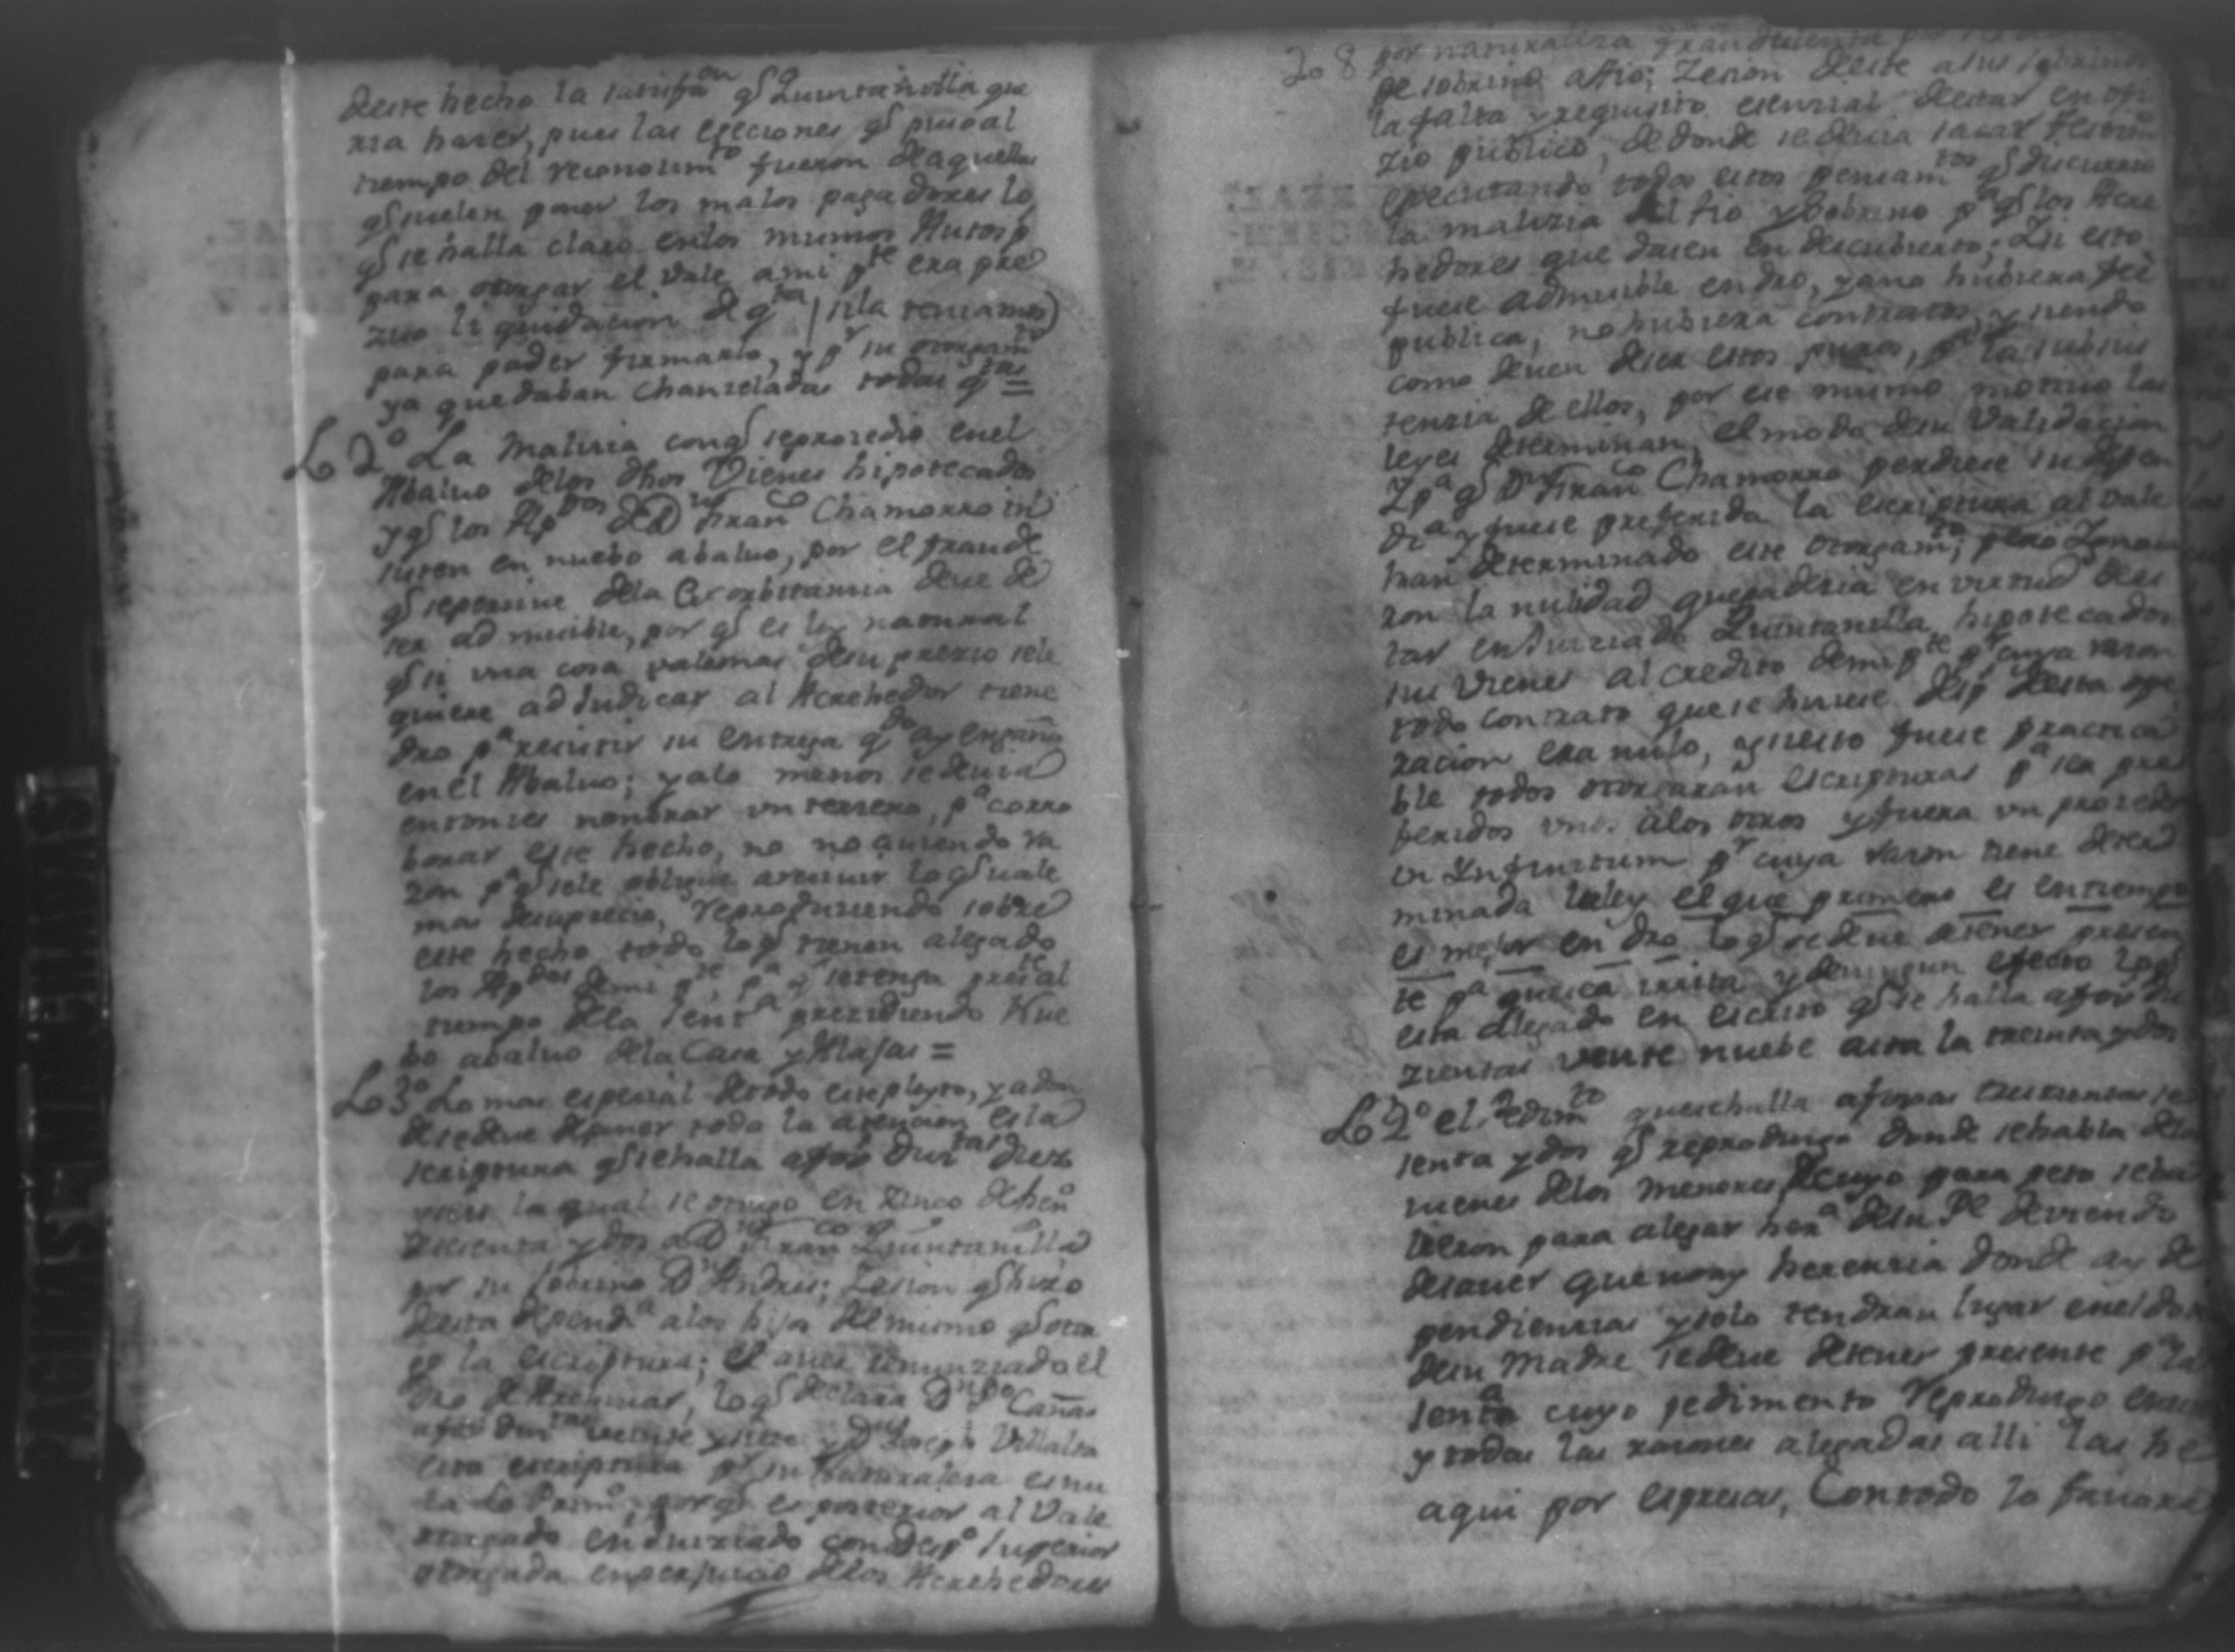 deste hecho la satisfa^on q^e Quintanilla que
rra hacer, pues las eseciones q^e puso al
tiempo del reconosim^to fueron de aquellas
q^e suelen poner los malos pagadores lo
q^e se halla claro en los mismos Autos p^s
para otorgar el Vale a mi p^te era pre
ziso liquidacion de q^ta (si la teniamos)
para poder firmarlo, y p^r su otorgam^to
ya quedaban chanzeladas todas q^tas =
Lo 2^o La malizia con q^e se prozedio en el
Abaluo de los dhos Vienes hipotecados
y q^e los Ap^dos de D^n Fran^co Chamorro in
sisten en nuebo abaluo, por el fraude
q^e se persive de la Exorbitansia deve de
ser admisible, por q^e es ley natural
q^e si una cosa vale mas de su prezio se le
quiere adJudicar al Acrehedor tiene
dro p^a resistir su entrega q^do ay engaño
en el Abaluo; y alo menos se devia
entonses nonbrar un terzero, p^a corro
borar este hecho, no no aviendo ra
zon p^a q^e se le obligue a resivir lo q^e vale
mas de su precio, reproduziendo sobre
este hecho todo lo q^e tienen alegado
los Ap^dos de mi p^te, p^a q^e se tenga pres^te al
tiempo de la Sent^a prezidiendo Nue
bo abaluo de la Casa y Alajas =
Lo 3^o Lo mas espesial de todo este pleyto, y a don
de se deve de poner toda la atencion es la
scriptura q^e se halla a fox^s Duz^tas diez
y seis la qual se otorgo en zinco de hen^o
de sesenta y dos a D^n Fran^co Quintanilla
por su sobrino D^n Andres; Zesion q^e hizo
desta depend^a a los hijos del mismo q^e otor
go la escriptura; el aver renunziado el
dro de Acreimias, lo q^e declara D^n Cañas
a fox^s Duz^tas veinte y siete y D^n Joseph Villalta
esta escriptura p^r su naturaleza es nu
la Lo Prim^o, por q^e es posterior al Vale
otorgado enduiziado con desp^o superior
otorgada en perjuicio de los Acrehedores
Lo 8 por naturaleza fraudulenta por ser
de sobrino a tio; Zesion deste a sus sobrinos
la falta y requisito esenzial de estar en ofi
zio publico, de donde se devia sacar testim^o
executando todos estos pensam^tos q^e discurrio
la malizia del tio y Sobrino p^a q^e los Acre
hedores que dasen en descubierto; Zi esto
fuese admisible en dro, ya no hubiera feè
publica, no hubiera contratos, y siendo
como deven de ser estos puros, p^a la subsis
tenzia de ellos, por ese mismo motivo las
leyes determinan el modo de su Validacion
Zp^a q^e D^n Fran^co Chamorro perdiese su depen
d^a y fuese preferida la escriptura al Vale
han determinado este otorgam^to; pero Zono
ron la nulidad que padezia en virtud de es
tar enduiziado Quintanilla hipotecados
sus Vienes al credito de mi p^te p^r cuya razon
todo contrato que se hiziese desp^s desta ope
razion era nulo, y si esto fuese practica
ble todos otorgaran escripturas p^a ser pre
feridos unos a los otros y fuera un proceder
in Ynfinitum p^r cuya razon tiene deter
minada la ley el que primero es en tiempo
es mejor en dro lo q^e se deve a tener presen
te p^a que sea irrita y de ningun efecto lo q^e
esta alegado en escrito q^e se halla a fox^s du
zientas vente nuebe asta la treinta y dos
Lo 2^o el Pedim^to que se halla a foxas trescientas se
senta y dos q^e reproduzgo donde se habla de los
vienes de los menores, de cuyo para peto se ba
lieron para alegar her^a de su P^e deviendo
de saver que no ay herenzia donde ay de
pendienzias y solo tendran lugar en el dote
de su Madre se deve de tener presente p^a la
senta^a cuyo pedimento reproduzgo en es
y todas las razones alegadas alli las he
aqui por espresas, Con todo lo favora